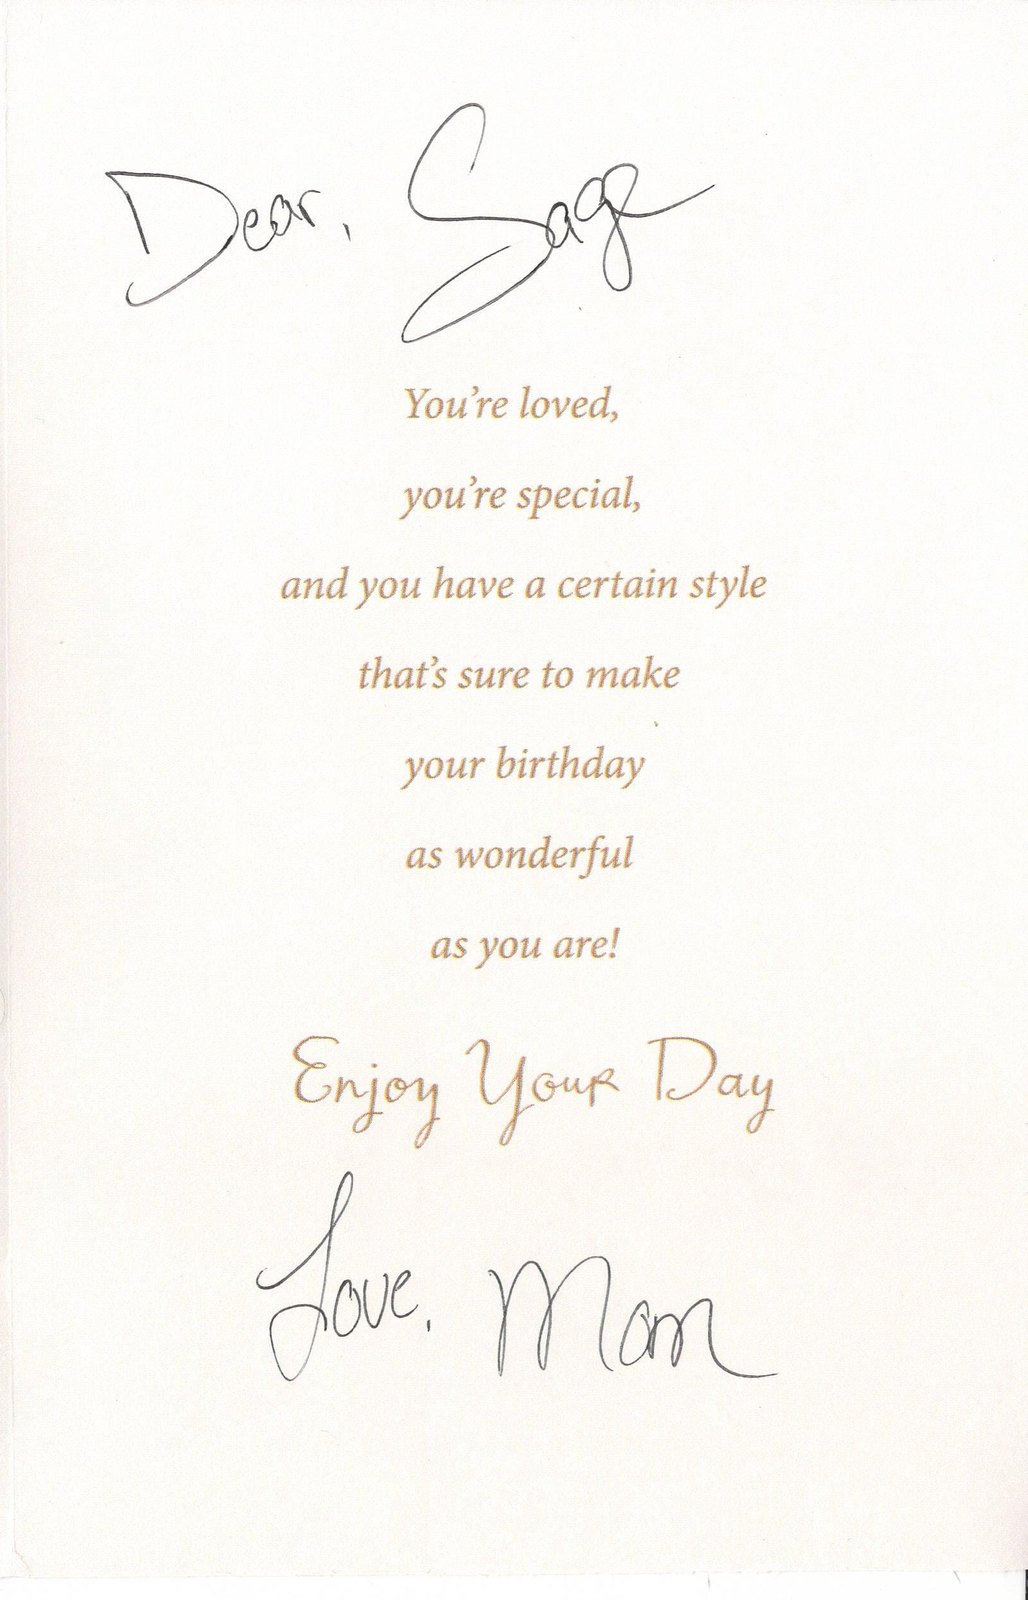 Dear, Sage
You're loved,
you're special,
and you have a certain style
that's sure to make
your birthday
as wonderful
as you are!
Enjoy Your Day
Love, Mom